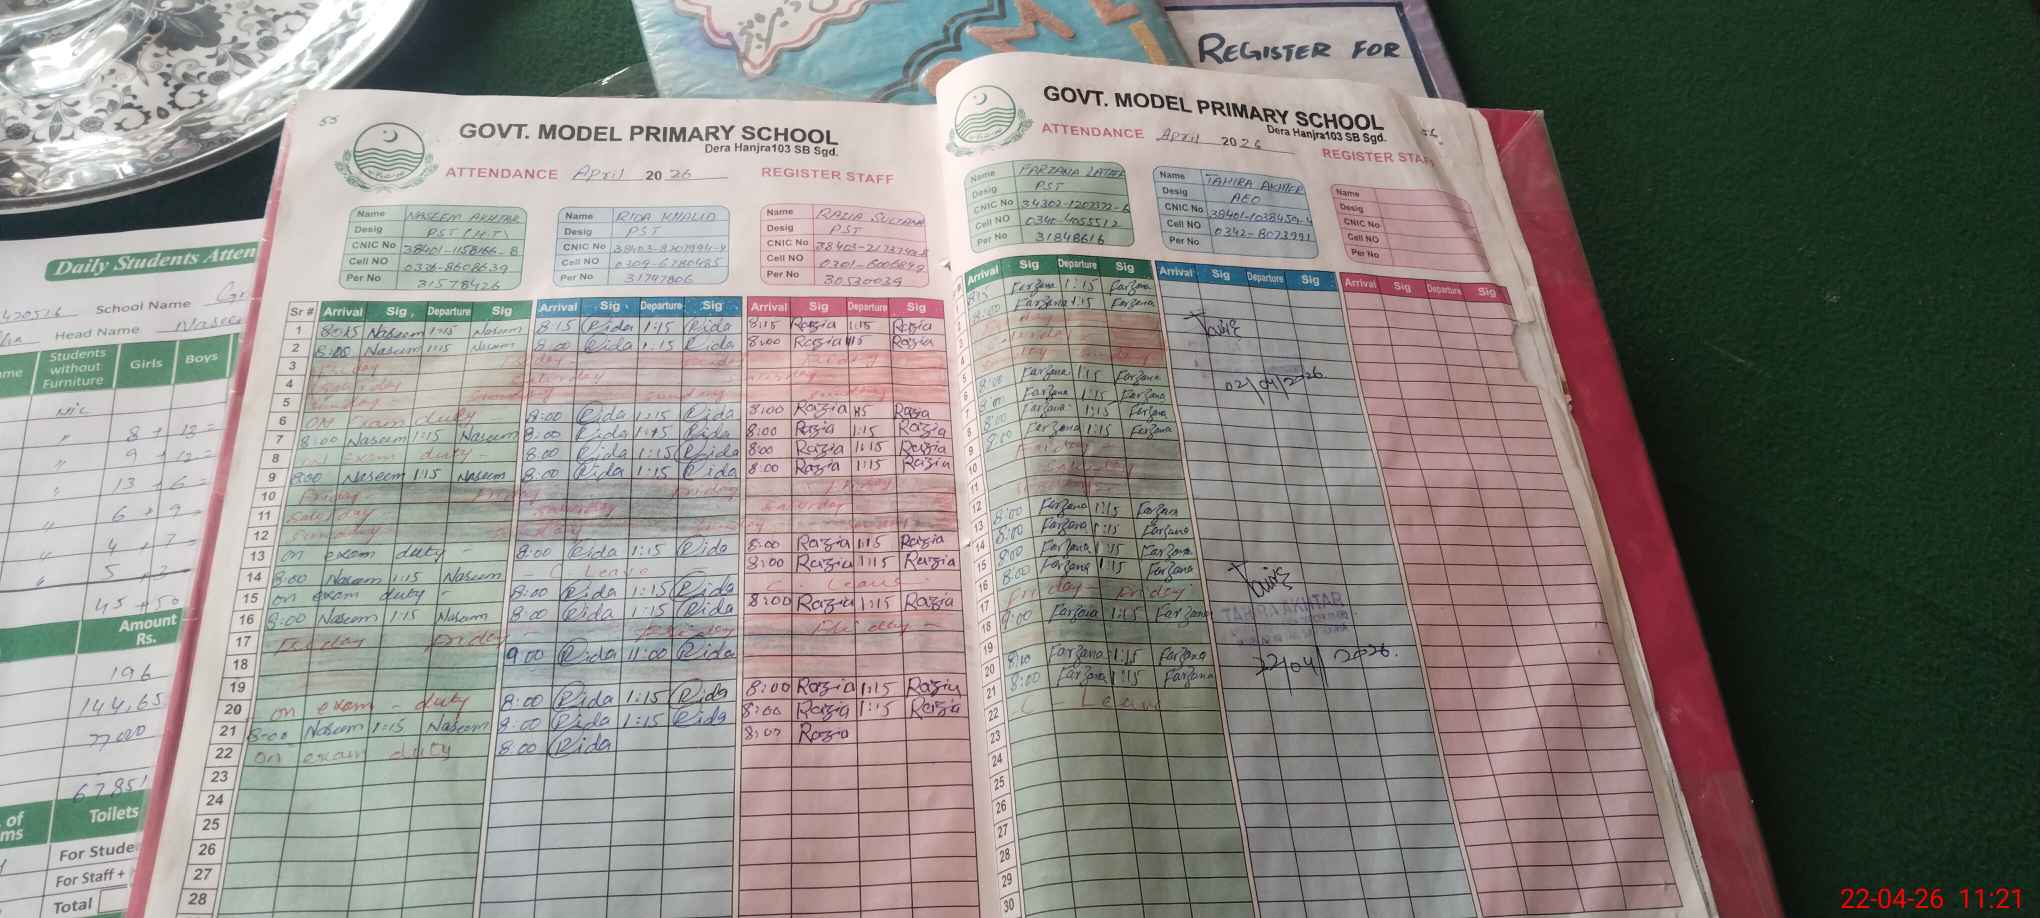 REGISTER FOR
55
GOVT. MODEL PRIMARY SCHOOL
Dera Hanjra103 SB Sgd.
ATTENDANCE April 2026 REGISTER STAFF
Name NASEEM AKHTAR
Desig PST (H.T)
CNIC No 38401-1158166-8
Cell NO 0336-8608639
Per No 31578426
Name RIDA KHALID
Desig PST
CNIC No 38403-8207994-4
Cell NO 0309-6780485
Per No 31797806
Name RAZIA SULTANA
Desig PST
CNIC No
Cell NO
Per No 30530039
Sr # Arrival Sig. Departure Sig Arrival Sig. Departure Sig. Arrival Sig Departure Sig
1 8:15 Naseem 1:15 Naseem 8:15 Rida 1:15 Rida 8:15 Razia 1:15 Razia
2 8:00 Naseem 1:15 Naseem 8:00 Rida 1:15 Rida 8:00 Razia 1:15 Razia
3 Friday
4 Saturday Saturday
5 Sunday Sunday Sunday Sunday
6 on exam duty 8:00 Rida 1:15 Rida 8:00 Razia 1:15 Razia
7 8:00 Naseem 1:15 Naseem 8:00 Rida 1:15 Rida 8:00 Razia 1:15 Razia
8 on exam duty - 8:00 Rida 1:15 Rida 8:00 Razia 1:15 Razia
9 8:00 Naseem 1:15 Naseem 8:00 Rida 1:15 Rida 8:00 Razia 1:15 Razia
10 Friday Friday Friday Friday
11 Saturday Saturday Saturday
12 Sunday Sunday Sunday
13 on exam duty - 8:00 Rida 1:15 Rida 8:00 Razia 1:15 Razia
14 8:00 Naseem 1:15 Naseem - C Leave - 8:00 Razia 1:15 Razia
15 on exam duty - 8:00 Rida 1:15 Rida C. Leave
16 8:00 Naseem 1:15 Naseem 8:00 Rida 1:15 Rida 8:00 Razia 1:15 Razia
17 Friday Friday - Friday Friday -
18 9:00 Rida 11:00 Rida
19
20 on exam - duty 8:00 Rida 1:15 Rida 8:00 Razia 1:15 Razia
21 8:00 Naseem 1:15 Naseem 8:00 Rida 1:15 Rida 8:00 Razia 1:15 Razia
22 on exam duty 8:00 Rida 8:00 Razia
23
24
25
26
27
28
GOVT. MODEL PRIMARY SCHOOL
Dera Hanjra103 SB Sgd.
ATTENDANCE April 2026 REGISTER STAFF
Name FARZANA LATIF
Desig PST
CNIC No 34302-1207372-6
Cell NO 0340-4055512
Per No 31848616
Name TAHIRA AKHTER
Desig AEO
CNIC No 38401-1038459-4
Cell NO 0342-8073991
Per No
Name
Desig
CNIC No
Cell NO
Per No
Arrival Sig Departure Sig Arrival Sig Departure Sig Arrival Sig Departure Sig
8:15 Farzana 1:15 Farzana
8:00 Farzana 1:15 Farzana
4
5 8:00 Farzana 1:15 Farzana
02/04/2026
6 8:00 Farzana 1:15 Farzana
7 8:00 Farzana 1:15 Farzana
8 8:00 Farzana 1:15 Farzana
9 Friday
10 Saturday
11
12 8:00 Farzana 1:15 Farzana
13 8:00 Farzana 1:15 Farzana
14 8:00 Farzana 1:15 Farzana
15 8:00 Farzana 1:15 Farzana
16 Friday - Friday
17 9:00 Farzana 1:15 Farzana
TAHIRA AKHTAR
18
19 8:00 Farzana 1:15 Farzana
22/04/2026.
20 8:00 Farzana 1:15 Farzana
21 - C - Leave
22
23
24
25
26
27
28
29
30
Daily Students Atten
School Name
Head Name Naseem
Students without Furniture Girls Boys
Nil 8 + 13 =
" 9 + 12 =
" 13 + 6 =
" 6 + 9 =
" 4 + 7 =
" 5 + 3 =
45 + 50
Amount Rs.
196
144,65
67851
Toilets
For Stude
For Staff +
Total
22-04-26 11:21